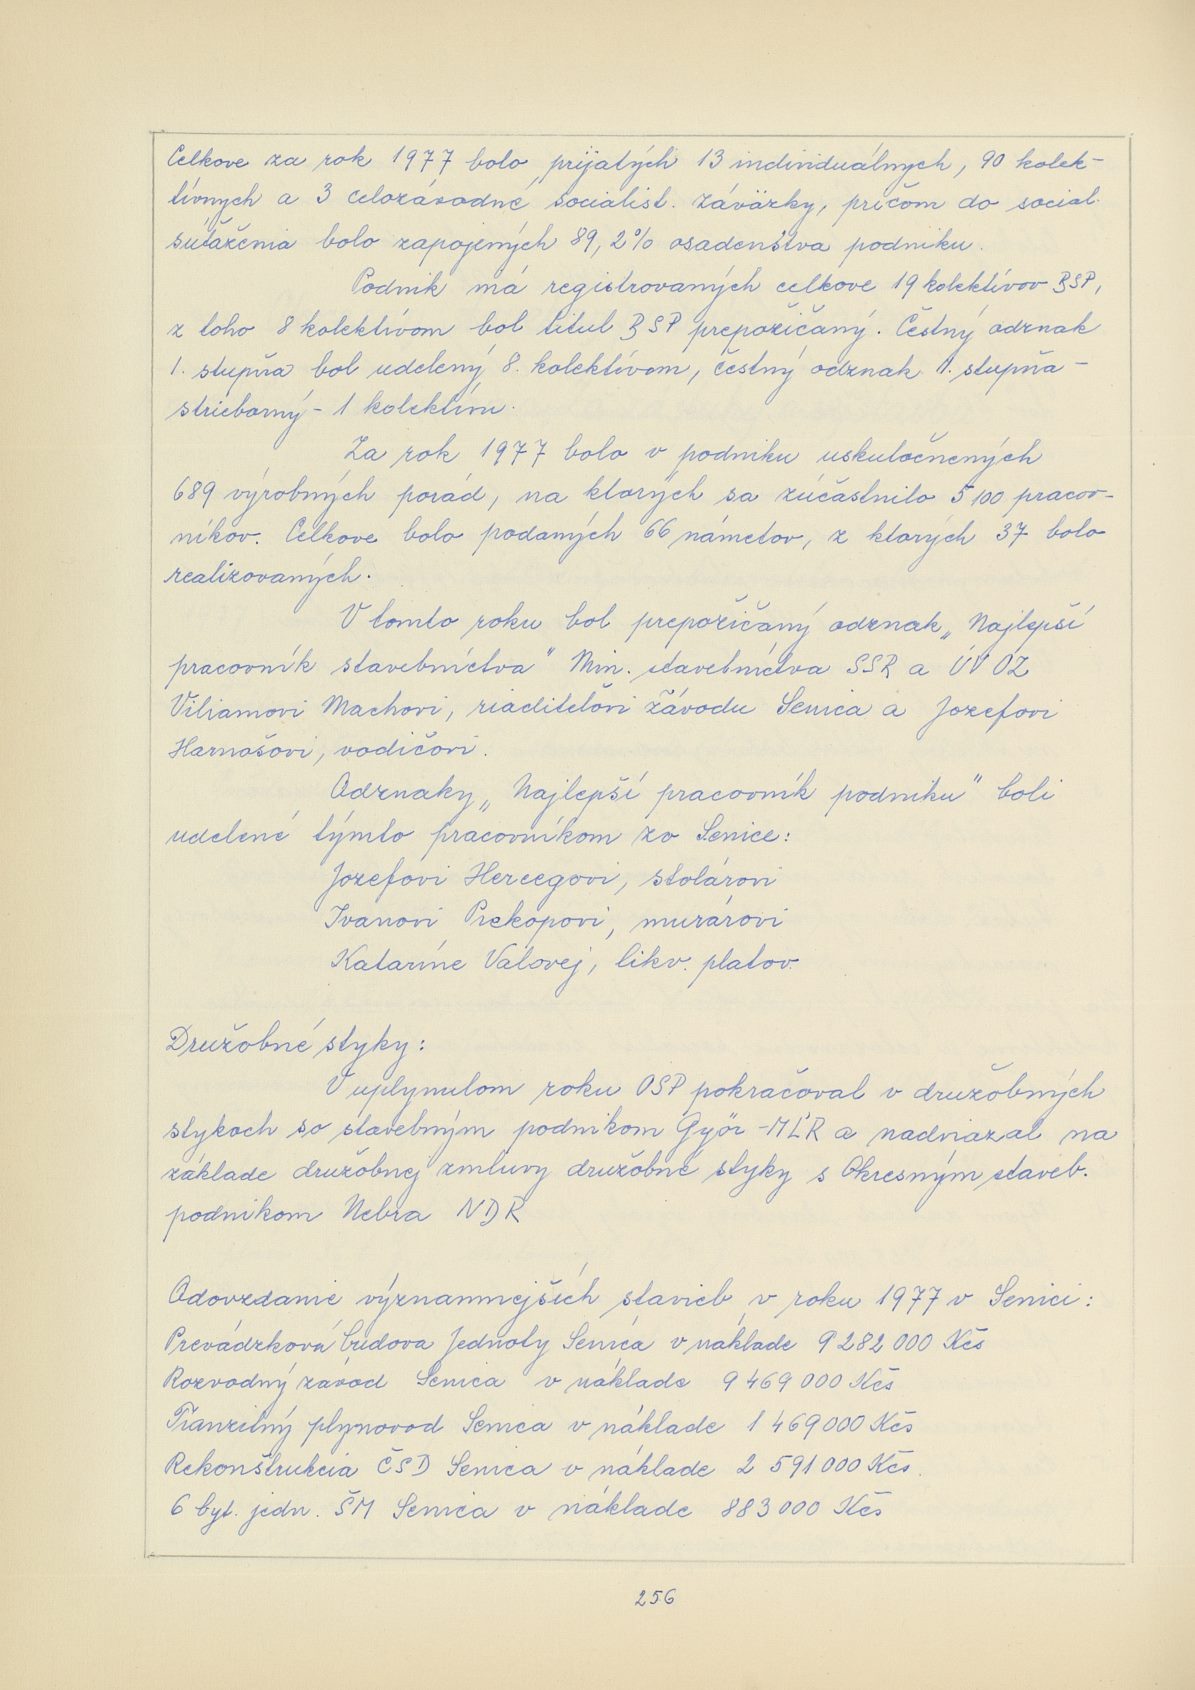 Celkove za rok 1977 bolo prijatých 13 individuálnych, 90 kolek-
tívnych a 3 celozávodné socialist. záväzky, pričom do social.
súťaženia bolo zapojených 89,2% osadenstva podniku.
Podnik má registrovaných celkove 19 kolektívov BSP,
z toho 8 kolektívom bol titul BSP prepožičaný. Čestný odznak
1. stupňa bol udelený 8. kolektívom, čestný odznak 1. stupňa -
strieborný - 1 kolektívu.
Za rok 1977 bolo v podniku uskutočnených
689 výrobných porád, na ktorých sa zúčastnilo 5 100 pracov-
níkov. Celkove bolo podaných 66 námetov, z ktorých 37 bolo
realizovaných.
V tomto roku bol prepožičaný odznak „Najlepší
pracovník stavebníctva" Min. stavebníctva SSR a ÚV OZ
Viliamovi Machovi, riaditeľovi závodu Senica a Jozefovi
Harnošovi, vodičovi.
Odznaky „Najlepší pracovník podniku" boli
udelené týmto pracovníkom zo Senice:
Jozefovi Hercegovi, stolárovi
Ivanovi Prekopovi, murárovi
Kataríne Valovej, likv. platov.
Družobné styky:
V uplynulom roku OSP pokračoval v družobných
stykoch so stavebným podnikom Györ - MĽR a nadviazal na
základe družobnej zmluvy družobné styky s Okresným staveb.
podnikom Nebra NDR
Odovzdanie významnejších stavieb v roku 1977 v Senici:
Prevádzková budova Jednoty Senica v náklade 9 282 000 Kčs
Rozvodný závod Senica v náklade 9 469 000 Kčs
Tranzitný plynovod Senica v náklade 1 469 000 Kčs
Rekonštrukcia ČSD Senica v náklade 2 591 000 Kčs.
6 byt. jedn. ŠM Senica v náklade 883 000 Kčs
256